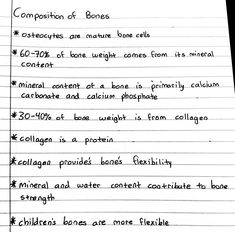 Composition of Bones
* osteocytes are mature bone cells
* 60-70% of bone weight comes from its mineral
content
* mineral content of a bone is primarily calcium
carbonate and calcium phosphate
* 30-40% of bone weight is from collagen
* collagen is a protein
* collagen provides bone's flexibility
* mineral and water content contribute to bone
strength
* children's bones are more flexible